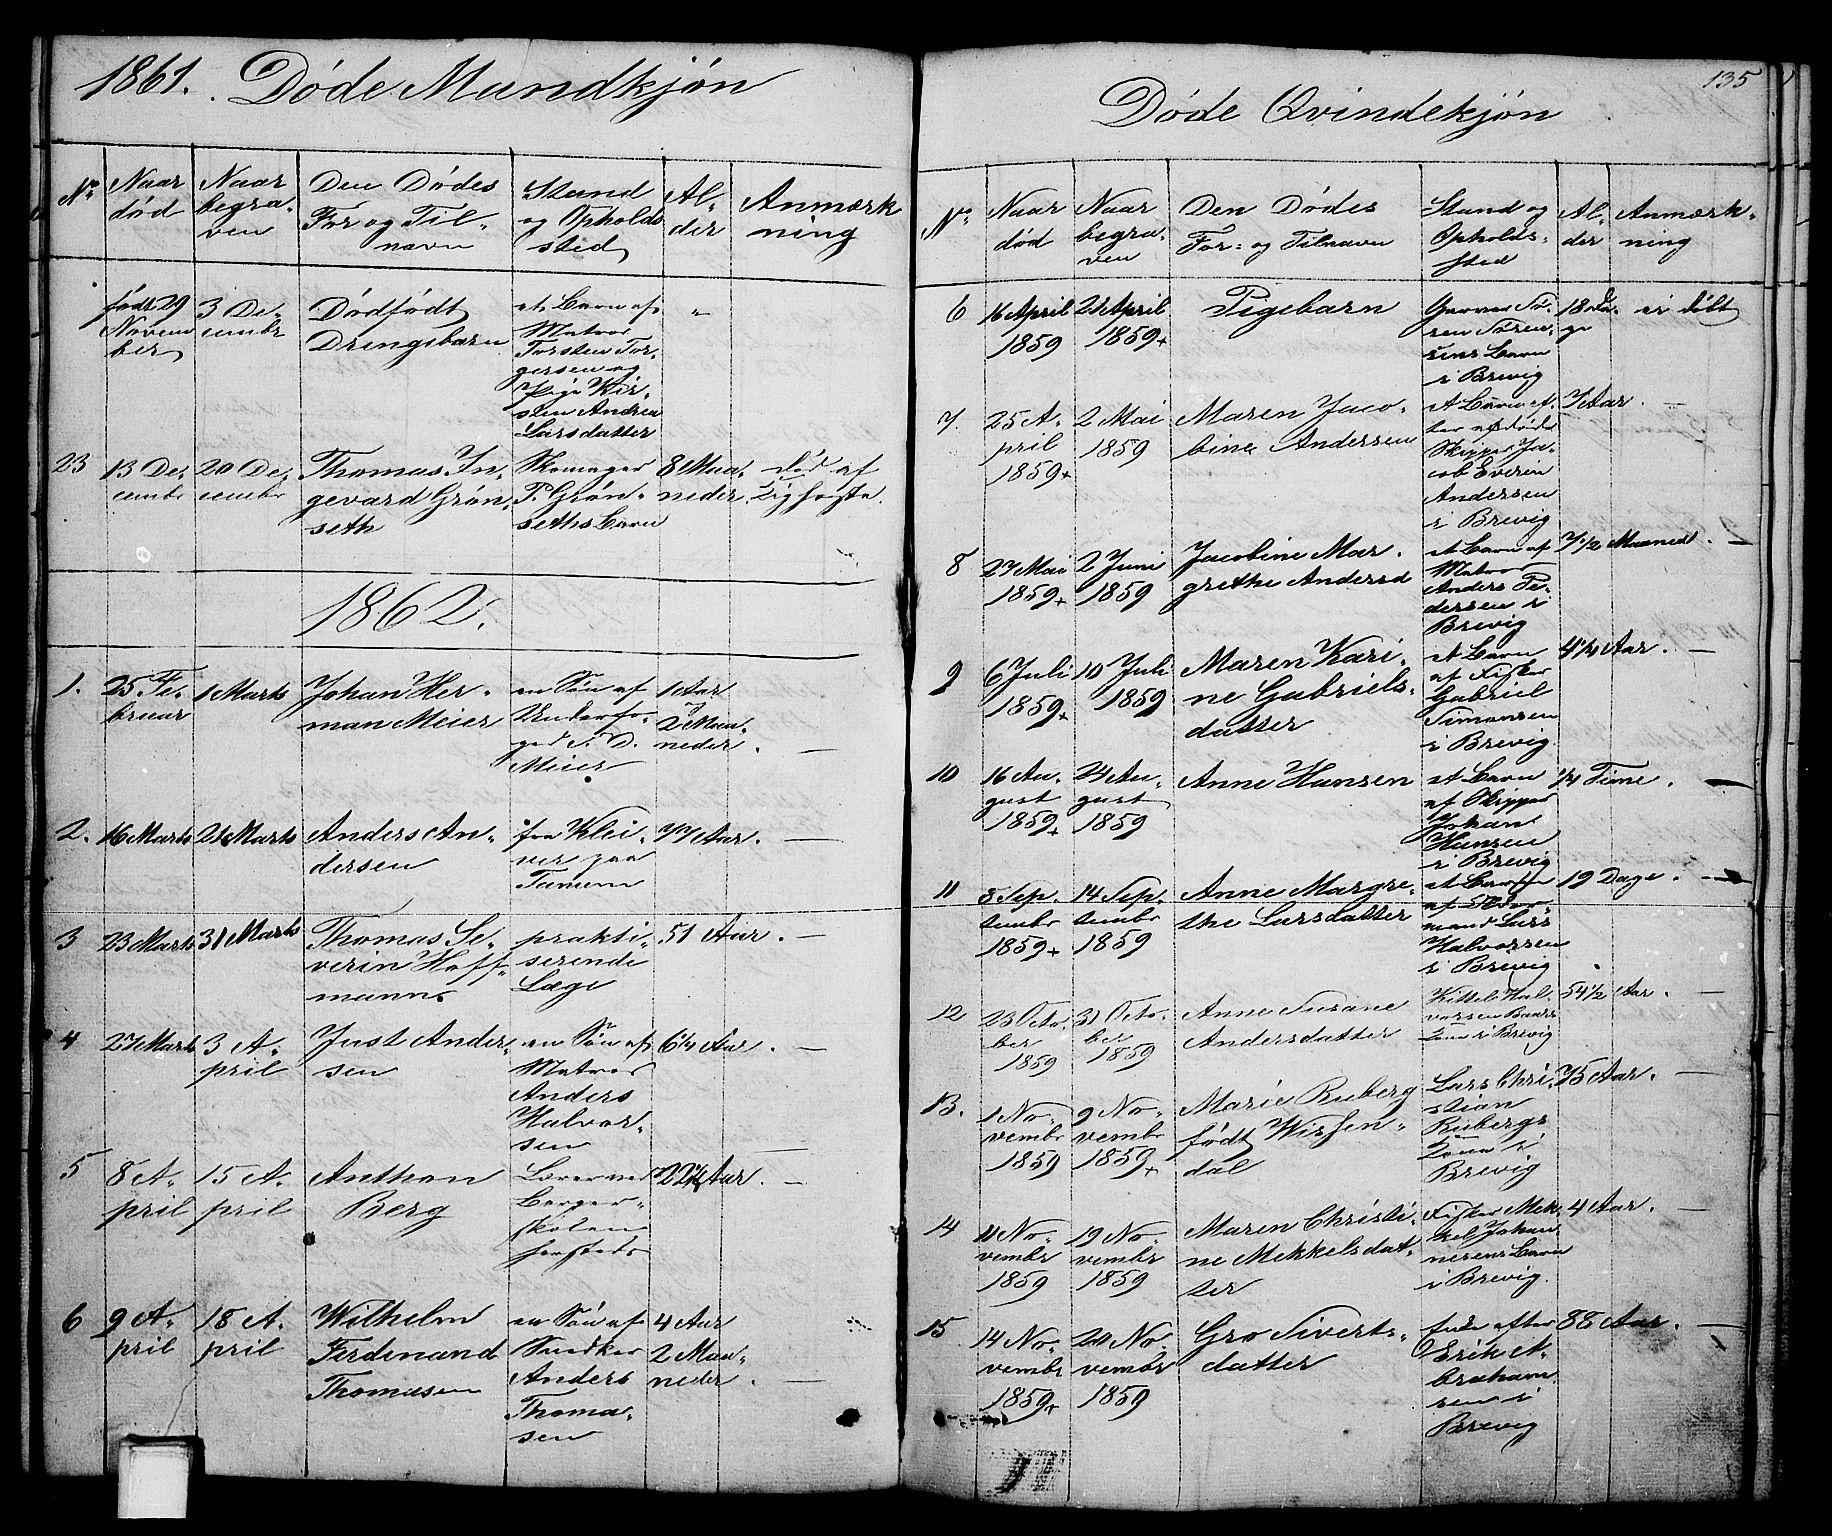 1861. Døde Mandkjøn
No
Naar
død
Naar
begra-
ven
Den Dødes
For og Til-
navn
Stand
og Opholds
sted
Al-
der
Anmærk
ning
født 29
Novem
ber
3 De-
cembr
Dødfødt
Drengebarn
et Barn af
Matros
Torsten Tor-
gersen og
Pige Kir-
sten Andrea
Larsdatter
"
23
13 De-
cembr
20 De-
cembr
Thomas In-
gevard Grøn-
seth
Skomager
P. Grøn-
seths Barn
8 Maa-
neder.
død af
1862.
1.
25 Fe-
bruar
1 Marts
Johan Her-
man Meier
en Søn af
Underfo-
ged S. D.
Meier
1 Aar
2 Maa-
neder.
—
2.
16 Marts
21 Marts
Anders An-
dersen
fra Klei-
ver paa
77 Aar.
—
3
23 Marts
31 Marts
Thomas Se-
verin Hoff-
mann.
prakti-
serende
Læge
51 Aar.
—
4
27 Marts
3 A-
pril
Just Ander-
sen
en Søn af
Matros
Anders
Halvor-
sen
6 1/4 Aar.
—
5
8 A-
pril
15 A-
pril
Anthon
Berg
Lærer ved
Borger-
skolen
22 1/2 Aar.
—
6
9 A-
pril
18 A-
pril
Wilhelm
Ferdinand
Thomasen
en Søn af
Snedker
Anders
Thoma-
sen
4 Aar
2 Maa-
neder.
—
135
Døde Qvindekjøn
No
Naar
død
Naar
begra-
ven
Den Dødes
For- og Tilnavn
Stand og
Opholds-
sted
Al-
der
Anmærk-
ning
6
16 April
1859
21 April
1859+
Pigebarn
Garver Sø-
ren Søren-
sens Barn
i Brevig
18 Da-
ge
ei døbt
7.
25 A-
pril
1859+
2 Mai
1859
Maren Jaco-
bine Andersen
et Barn af-
ter afdøde
Skipper Ja-
cob Everin
Andersen
i Brevig
7 Aar.
—
8
27 Mai
1859+
2 Juni
1859
Jacobine Mar-
grethe Andersd
et Barn af
Matros
Anders Pe-
dersen i
Brevig
7 1/2 Maaned.
—
9
6 Juli
1859+
10 Juli
1859
Maren Kari-
ne Gabriels-
datter
et Barn
af Fisker
Gabriel
Simonsen
i Brevig
4 1/4 Aar.
—
10
16 Au-
gust
1859+
24 Au-
gust
1859
Anne Hansen
et Barn
af Skipper
Johan
Hansen
i Brevig
1/4 Time.
—
11
3 Sep-
tembr
1859+
14 Sep-
tembr
1859
Anne Margre-
the Larsdatter
et Barn
mand Lars
Halvorsen
i Brevig
19 Dage.
—
12
23 Octo
ber
1859
31 Octo-
ber
1859
Anne Susane
Andersdatter
Kittel Hal-
vorsen Baars
Kone i Brevig
54 1/2 Aar.
—
13.
1 No-
vembr
1859
9 No-
vembr
1859+
Marie Ruberg
født Wissen-
dal
Lars Chri-
stian
Rubergs
Kone i
Brevig
75 Aar.
—
14
11 No-
vembr
1859
19 No-
vembr
1859
Maren Christi-
ne Mekkelsdat-
ter
Fisker Mek-
kel Johan-
nesens Barn
i Brevig.
4 Aar.
—
15
14 No-
vembr
1859+
20 No-
vembr
1859
Gro Siverts-
datter
Enke efter
Erik A-
braham-
sen i
Brevig
88 Aar.
—